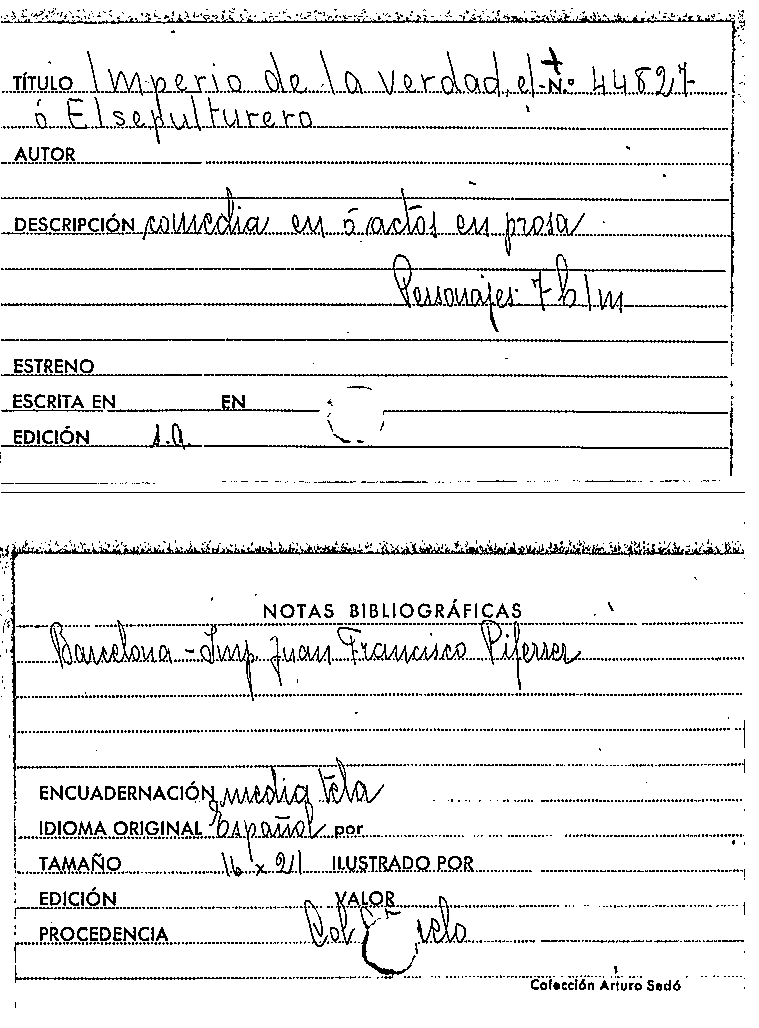 TÍTULO Imperio de la verdad, el N.º 44827
ó El sepulturero
AUTOR
DESCRIPCIÓN comedia en 5 actos en prosa
Personajes: 7 h 1 m
ESTRENO
ESCRITA EN EN
EDICIÓN s.a.
NOTAS BIBLIOGRÁFICAS
Barcelona - Imp Juan Francisco Piferrer
ENCUADERNACIÓN media tela
IDIOMA ORIGINAL Español por
TAMAÑO 16 x 21 ILUSTRADO POR
EDICIÓN VALOR
PROCEDENCIA Col
Colección Arturo Sedó